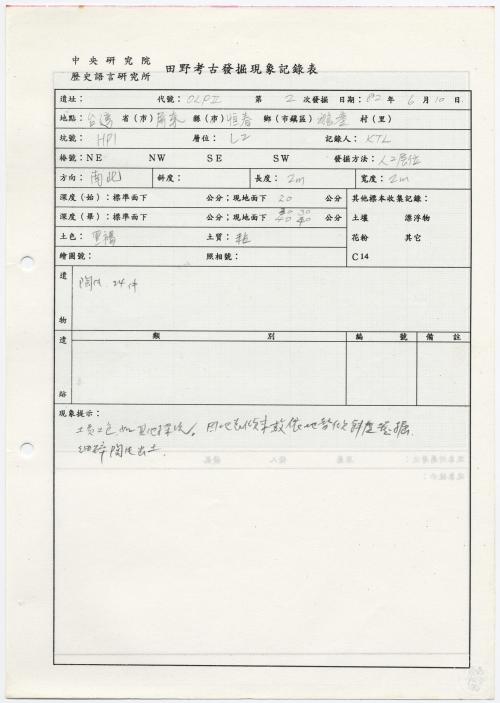 中央研究院
歷史語言研究所
田野考古發掘現象記錄表
遺址： 代號：OLPII 第 2 次發掘 日期：82 年 6 月 10 日
地點：台灣 省(市) 屏東 縣(市) 恒春 鄉(市鎮區) 村(里)
坑號：HP1 層位：L2 記錄人：KTL
樁號：NE NW SE SW 發掘方法：人工層位
方向：南北 斜度： 長度：2m 寬度：2m
深度(始)：標準面下 公分；現地面下 20 公分 其他標本收集記錄：
深度(畢)：標準面下 公分；現地面下 40 40 公分 土壤 漂浮物
土色：黑褐 土質： 花粉 其它
繪圖號： 照相號： C14
遺物 陶片 24件
遺跡 類別 編號 備註
現象提示：
土質土色如其他探坑。因地勢傾斜故依地勢傾斜度發掘
細碎陶片出土